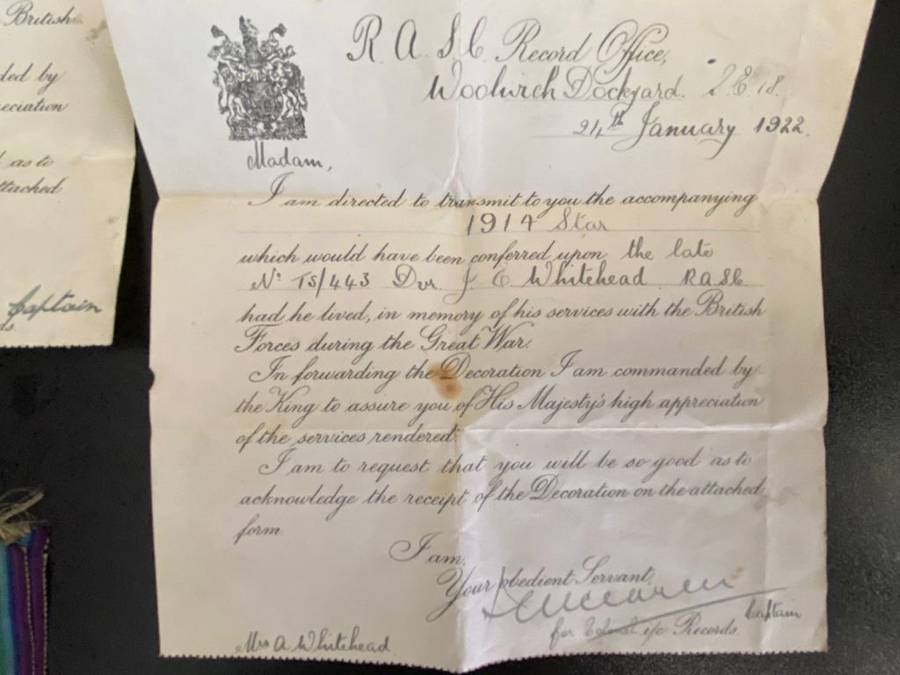 British
ded by
eciation
as to
ttached
Captain
ds.
R.A.S.C Record Office,
Woolwich Dockyard. S.E. 18.
24th January 1922.
Madam,
I am directed to transmit to you the accompanying
1914 Star
which would have been conferred upon the late
No TS/443 Dvr. J E Whitehead. RASC
had he lived, in memory of his services with the British
Forces during the Great War.
In forwarding the Decoration I am commanded by
the King to assure you of His Majesty's high appreciation
of the services rendered.
I am to request that you will be so good as to
acknowledge the receipt of the Decoration on the attached
form.
I am,
Your obedient Servant,
Captain
for Colonel i/c Records.
Mrs A Whitehead